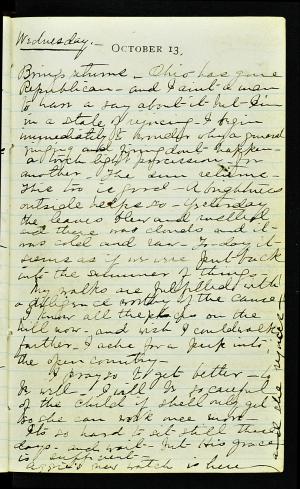 Wednesday.—
OCTOBER 13.
Brings returns – Ohio has gone
Republican – and I aint a man
to have a say about it but I'm
in a state of rejoicing – I begin
immediately to wonder why a grand
and dont happen
a torch light procession – for
another – The sun returns –
This too is good – A brightness
outside helps so – Yesterday
the leaves blew and
and there was clouds and it
was cold and raw – To-day it
seems as if we were just back
into the summer of things –
My walks are fulfilled with
a diligence worthy of the cause
I know all the on the
hill now – and wish I could walk
farther – I ache for a peep into
the open country –
I pray so to get better – to
be well – I will be so careful
of the child if shall only get
so she can work once more
Its so hard to sit still these
days – and wait – but His grace
is sufficient –
Aggie's new watch is here